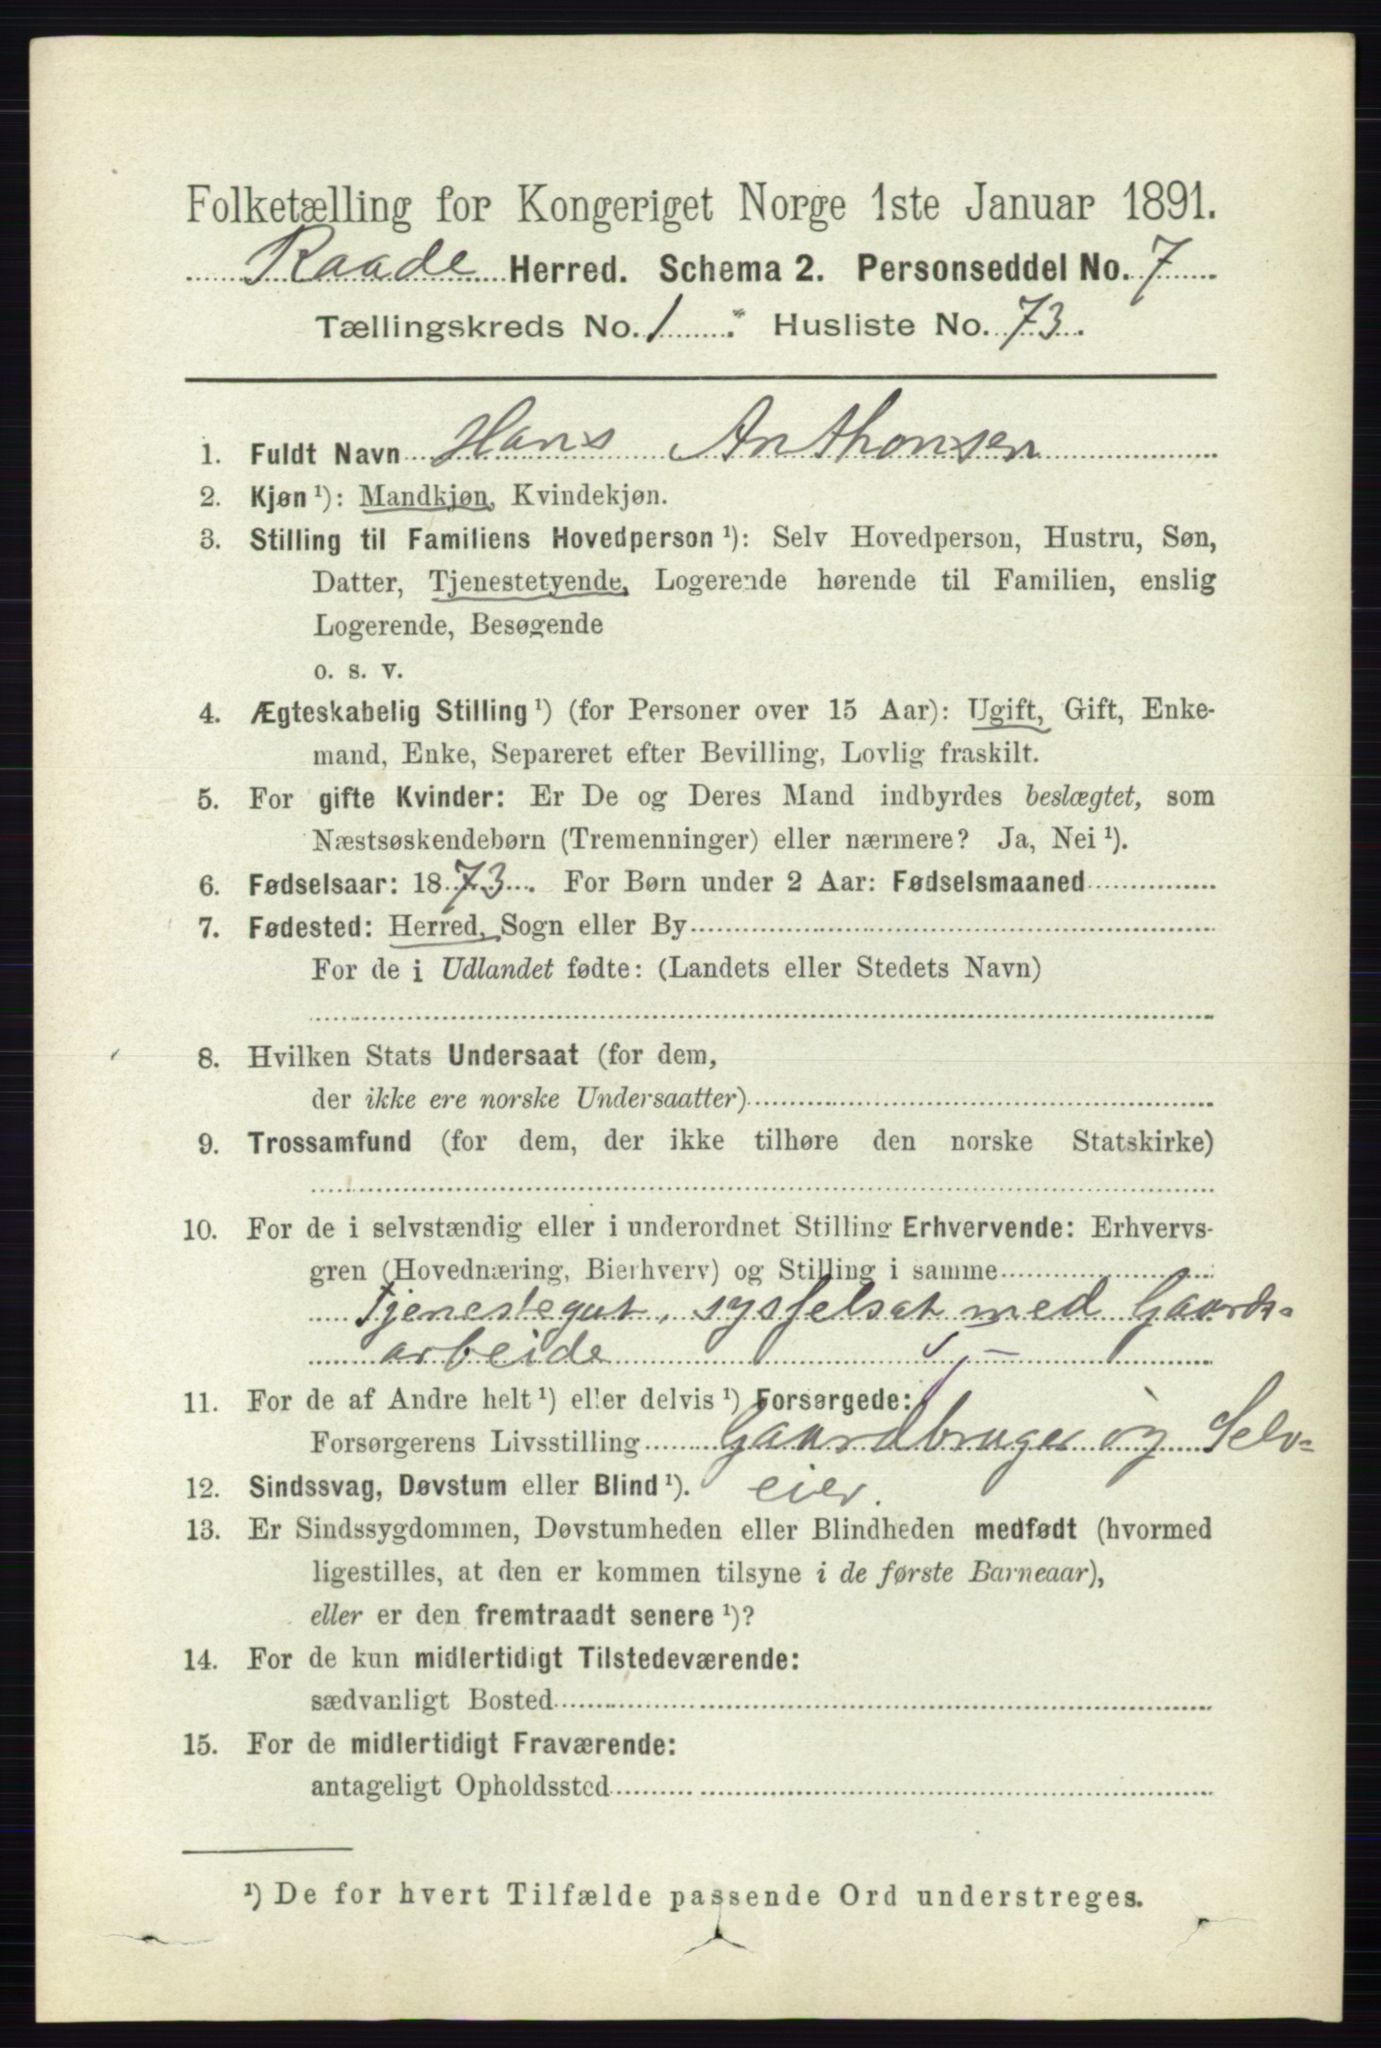 Folketælling for Kongeriget Norge 1ste Januar 1891.
Raade Herred. Schema 2. Personseddel No. 7
Tællingskreds No. 1 . Husliste No. 73.
1. Fuldt Navn Hans Anthonsen
2. Kjøn ¹): Mandkjøn, Kvindekjøn.
3. Stilling til Familiens Hovedperson ¹): Selv Hovedperson, Hustru, Søn,
Datter, Tjenestetyende, Logerende hørende til Familien, enslig
Logerende, Besøgende
o. s. v.
4. Ægteskabelig Stilling ¹) (for Personer over 15 Aar): Ugift, Gift, Enke-
mand, Enke, Separeret efter Bevilling, Lovlig fraskilt.
5. For gifte Kvinder: Er De og Deres Mand indbyrdes beslægtet, som
Næstsøskendebørn (Tremenninger) eller nærmere? Ja, Nei ¹).
6. Fødselsaar: 1873. For Børn under 2 Aar: Fødselsmaaned
7. Fødested: Herred, Sogn eller By
For de i Udlandet fødte: (Landets eller Stedets Navn)
8. Hvilken Stats Undersaat (for dem,
der ikke ere norske Undersaatter)
9. Trossamfund (for dem, der ikke tilhøre den norske Statskirke)
10. For de i selvstændig eller i underordnet Stilling Erhvervende: Erhvervs-
gren (Hovednæring, Bierhverv) og Stilling i samme
Tjenestegut, sysselsat med Gaards-
arbeide
11. For de af Andre helt ¹) eller delvis ¹) Forsørgede:
Forsørgerens Livsstilling Gaardbruger og Selv-
12. Sindssvag, Døvstum eller Blind ¹). eier.
13. Er Sindssygdommen, Døvstumheden eller Blindheden medfødt (hvormed
ligestilles, at den er kommen tilsyne i de første Barneaar),
eller er den fremtraadt senere ¹)?
14. For de kun midlertidigt Tilstedeværende:
sædvanligt Bosted
15. For de midlertidigt Fraværende:
antageligt Opholdssted
¹) De for hvert Tilfælde passende Ord understreges.